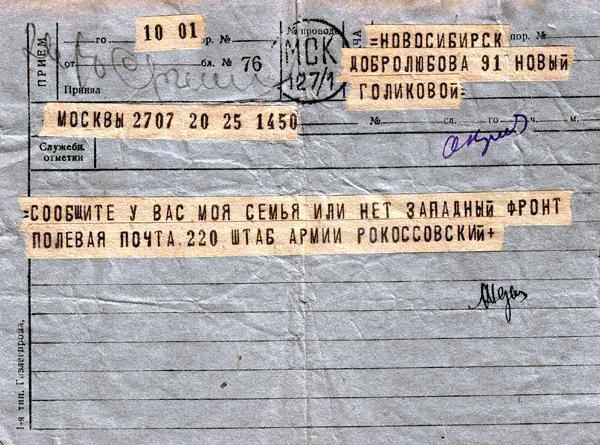 ПРИЕМ
го
10 01
ор. №
№ провода
МСК
127/1
ЧА
=НОВОСИБИРСК
ДОБРОЛЮБОВА 91 НОВЫЙ
ГОЛИКОВОЙ=
от
бл. № 76
Принял
МОСКВЫ 2707 20 25 1450
№ сл. го ч. м.
Служебн.
отметки
=СООБЩИТЕ У ВАС МОЯ СЕМЬЯ ИЛИ НЕТ ЗАПАДНЫЙ ФРОНТ
ПОЛЕВАЯ ПОЧТА 220 ШТАБ АРМИИ РОКОССОВСКИЙ+
1-я тип.